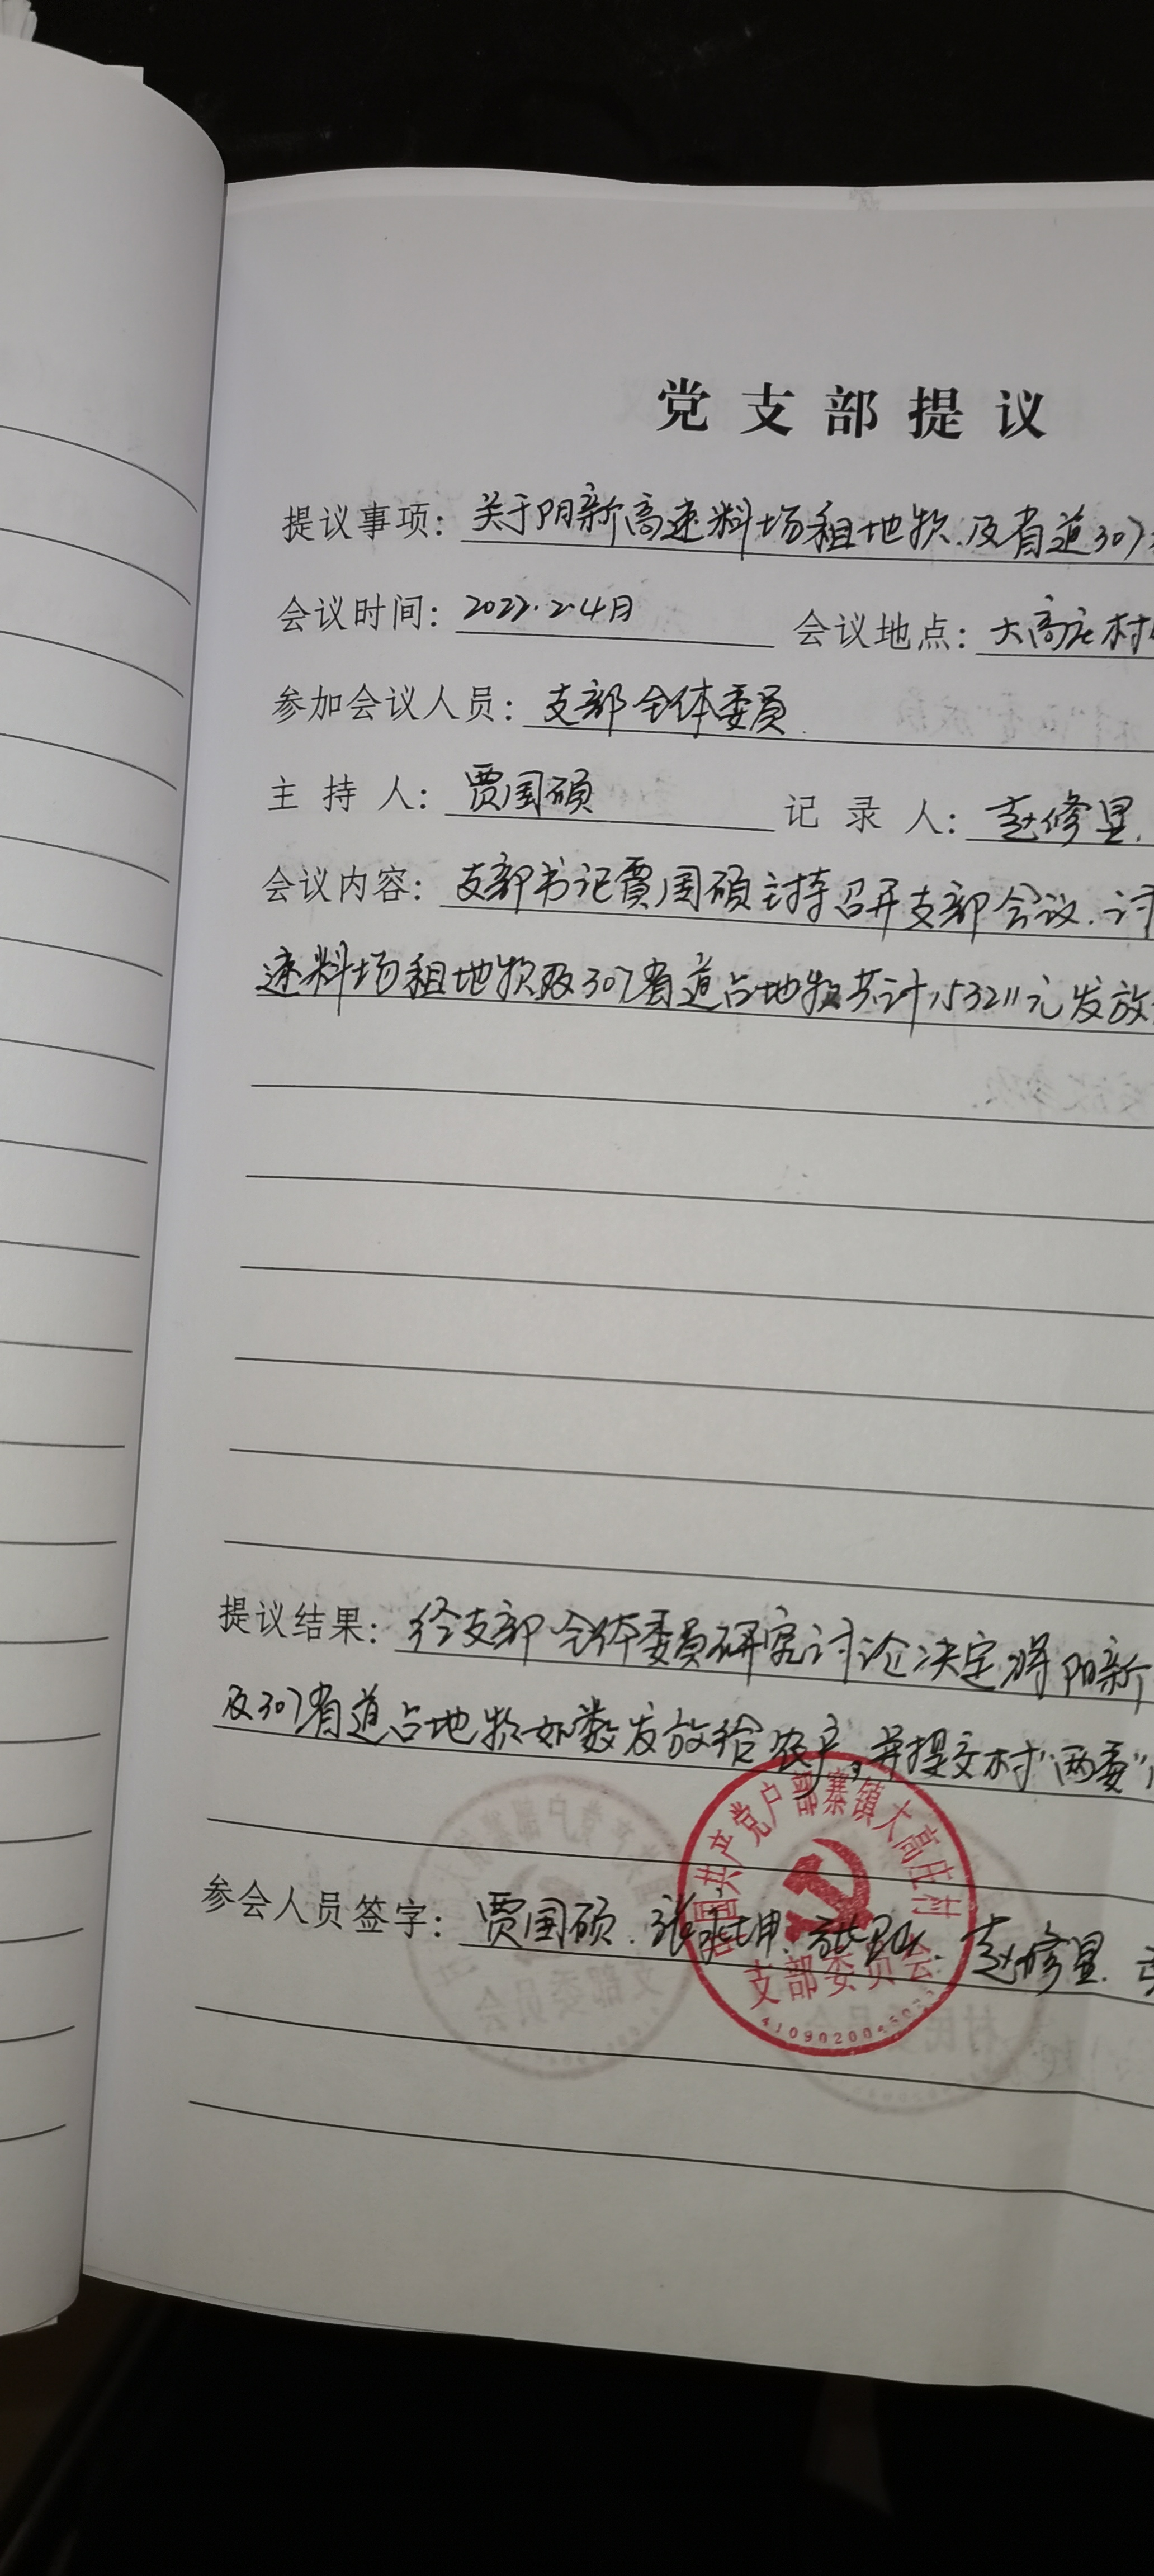 党支部提议
提议事项：关于阳新高速料场租地款.及省道307
会议时间：2022.2.4月 会议地点：大高庄村
参加会议人员：支部全体委员.
主持人：贾国硕 记录人：赵修显.
会议内容：支部书记贾国硕主持召开支部会议.讨
速料场租地款及307省道占地款共计153211元发放
提议结果：经支部全体委员研究讨论决定.将阳新
及307省道占地款如数发放给农户,并提交村"两委"
中国共产党户部寨镇大高庄村
支部委员会
参会人员签字：贾国硕. 赵修显.